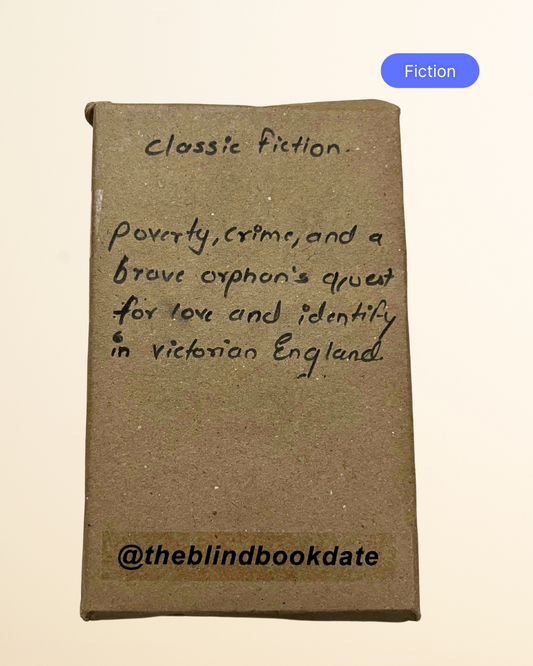 Fiction
classic fiction.
poverty, crime, and a
brave orphan's quest
for love and identify
in victorian England.
@theblindbookdate